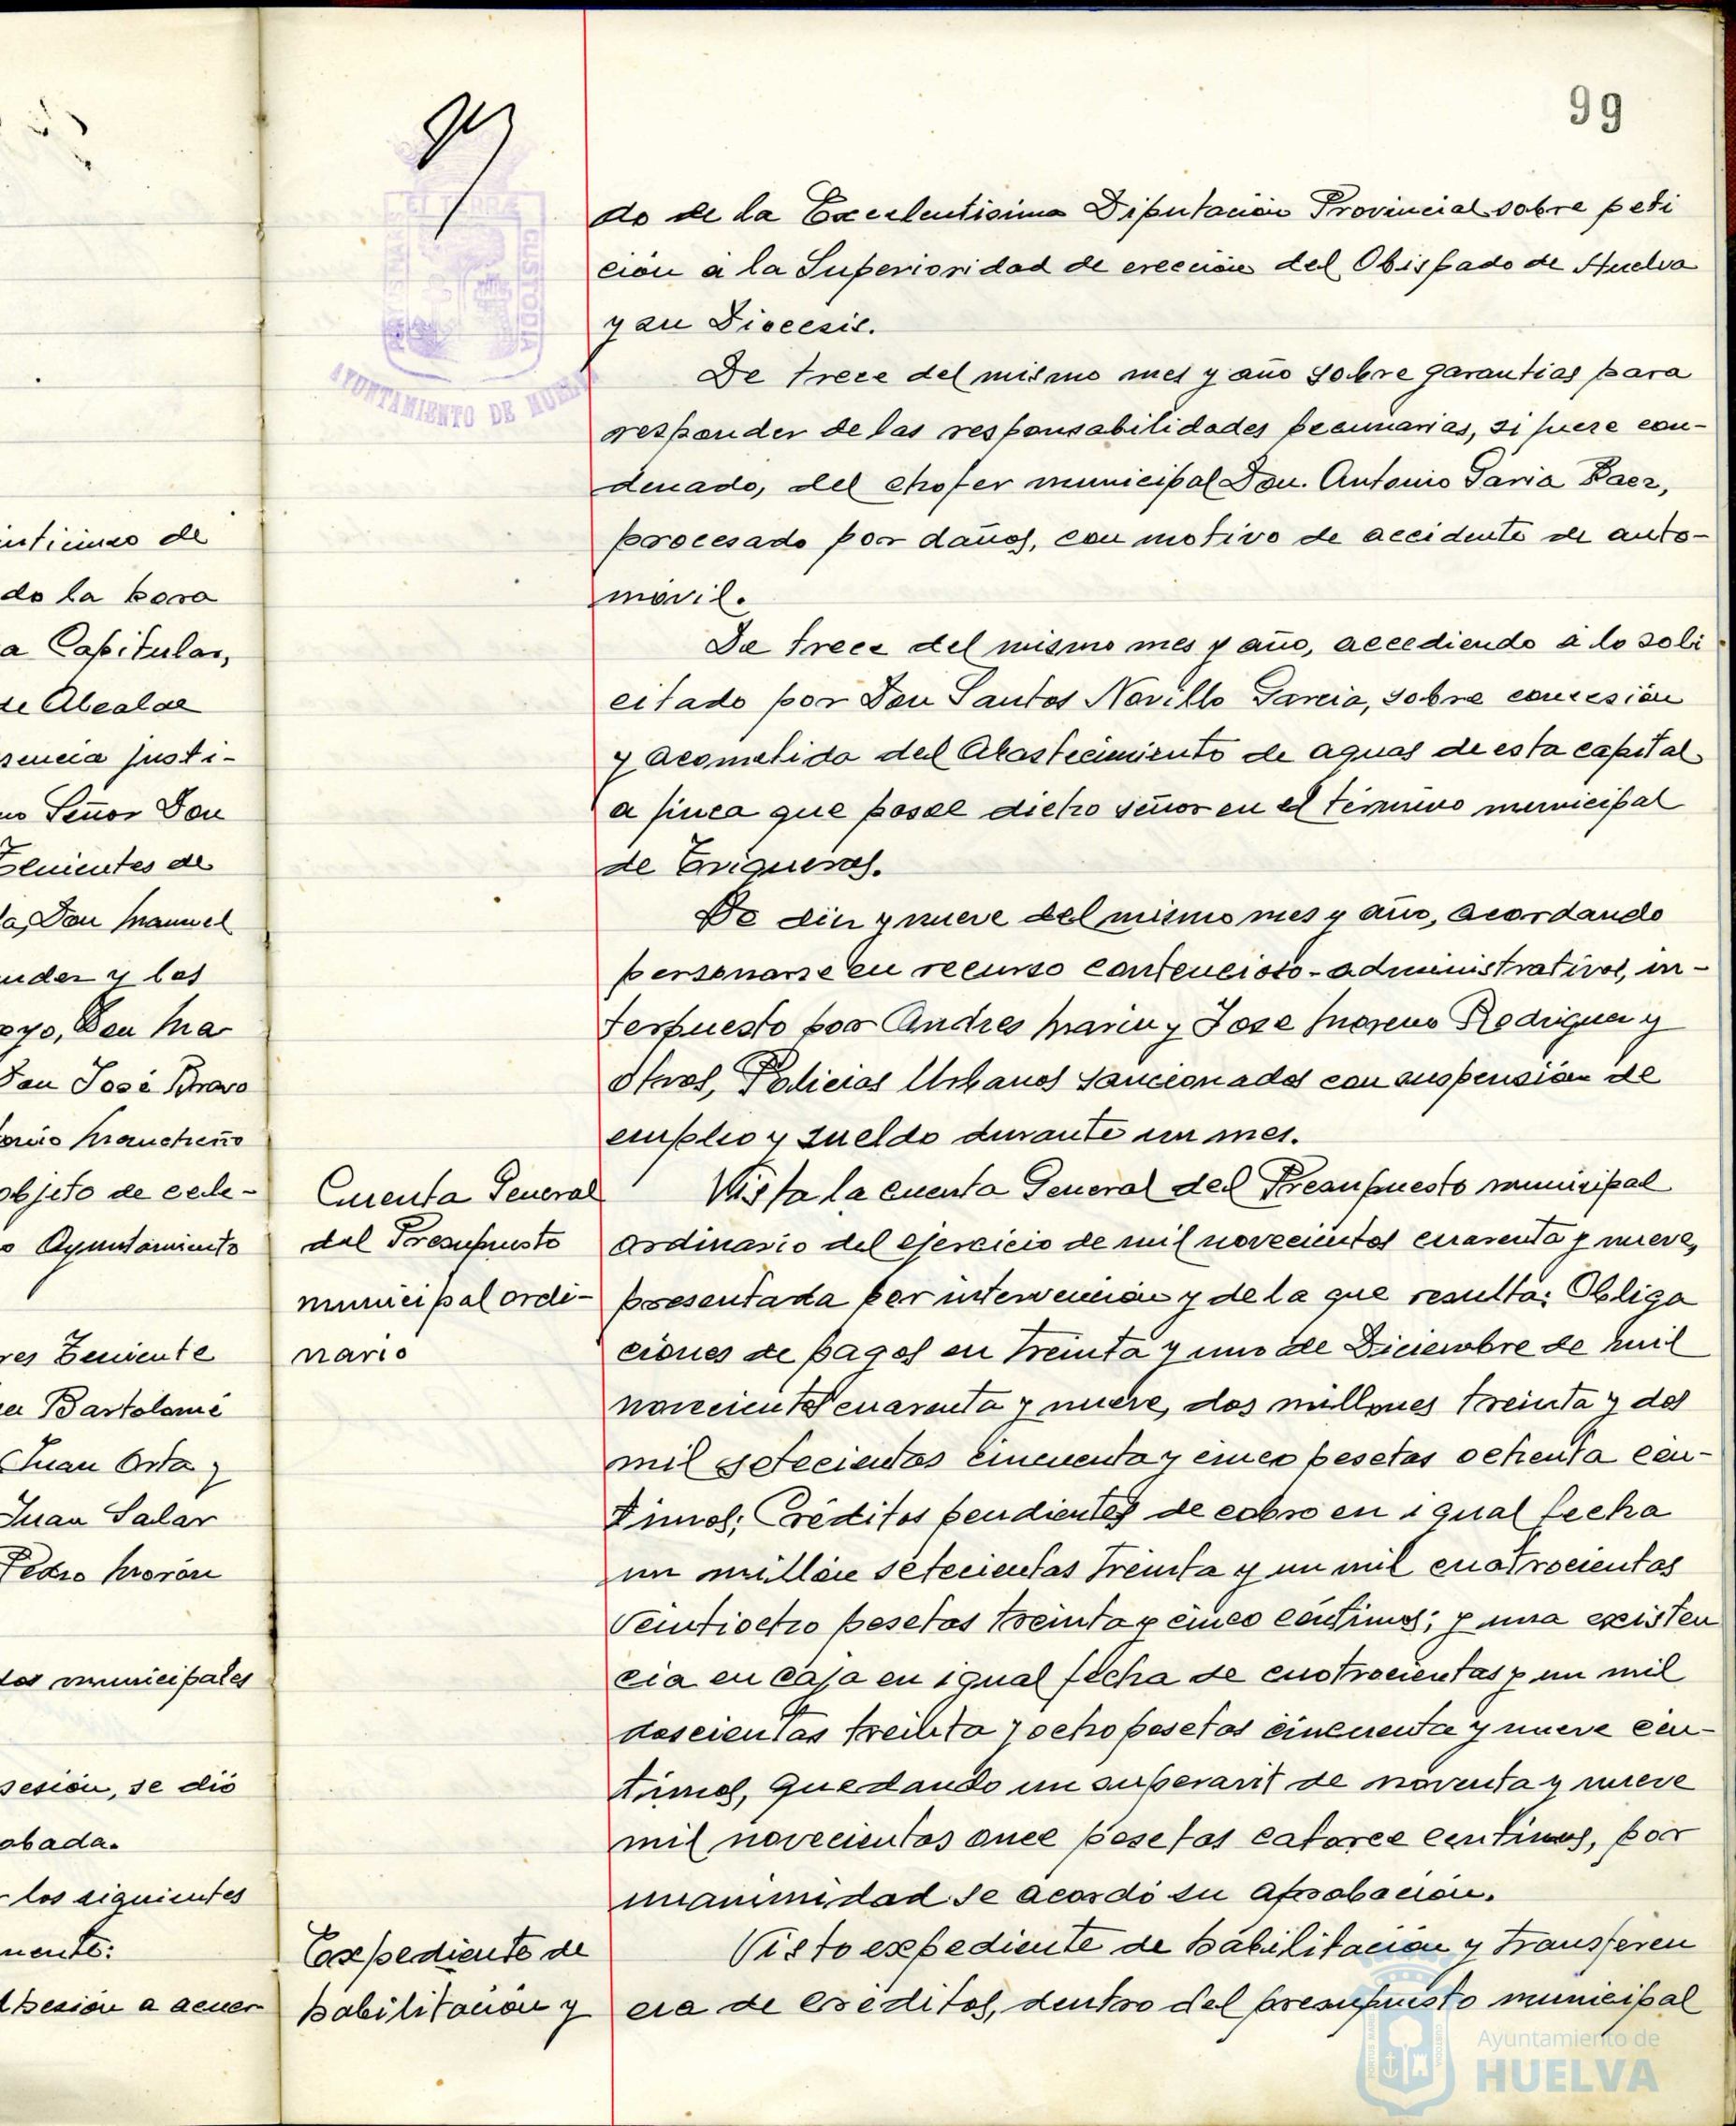 99
EL TERRÆ
CUSTODIA
AYUNTAMIENTO DE HUELVA
inticinco de
do la hora
a Capitular,
de Alcalde
sencia justi-
no Señor Don
Tenientes de
la, Don Manuel
nder y los
oyo, Don Ma
Don José Bravo
onio Mancheño
objeto de cele-
o Ayuntamiento
res Teniente
er Bartolomé
Juan Orta y
Juan Salar
Pedro Morón
tos municipales
sesión, se dió
obada.
los siguientes
mente:
sesión a acuer
Cuenta General
del Presupuesto
municipal ordi-
nario
Expediente de
habilitación y
do de la Excelentisima Diputación Provincial sobre peti
ción a la Superioridad de erección del Obispado de Huelva
y su Diocesis.
De trece del mismo mes y año sobre garantias para
responder de las responsabilidades pecuniarias, si fuere con-
denado, del chofer municipal Don. Antonio Garia Baez,
procesado por daños, con motivo de accidente de auto-
móvil.
De trece del mismo mes y año, accediendo a lo soli
citado por Don Santos Novillo Garcia, sobre concesión
y acometida del Abastecimiento de aguas de esta capital
a finca que posee dicho señor en el término municipal
de Trigueros.
De diez y nueve del mismo mes y año, acordando
personarse en recurso contencioso-administrativos, in-
terpuesto por Andres Marin y Jose Moreno Rodriguez y
otros, Policias Urbanos sancionados con suspensión de
empleo y sueldo durante un mes.
Vista la cuenta General del Presupuesto municipal
ordinario del ejercicio de mil novecientos cuarenta y nueve,
presentada por intervención y de la que resulta: Obliga
ciones de pagos en treinta y uno de Diciembre de mil
novecientos cuarenta y nueve, dos millones treinta y dos
mil setecientas cincuenta y cinco pesetas ochenta cén-
timos; Créditos pendientes de cobro en igual fecha
un millón setecientas treinta y un mil cuatrocientas
veintiocho pesetas treinta y cinco céntimos; y una existen
cia en caja en igual fecha de cuatrocientas y un mil
doscientas treinta y ocho pesetas cincuenta y nueve cén-
timos, quedando un superavit de noventa y nueve
mil novecientas once pesetas catorce centimos, por
unanimidad se acordó su aprobación.
Visto expediente de habilitación y transferen
cia de créditos, dentro del presupuesto municipal
Ayuntamiento de
HUELVA